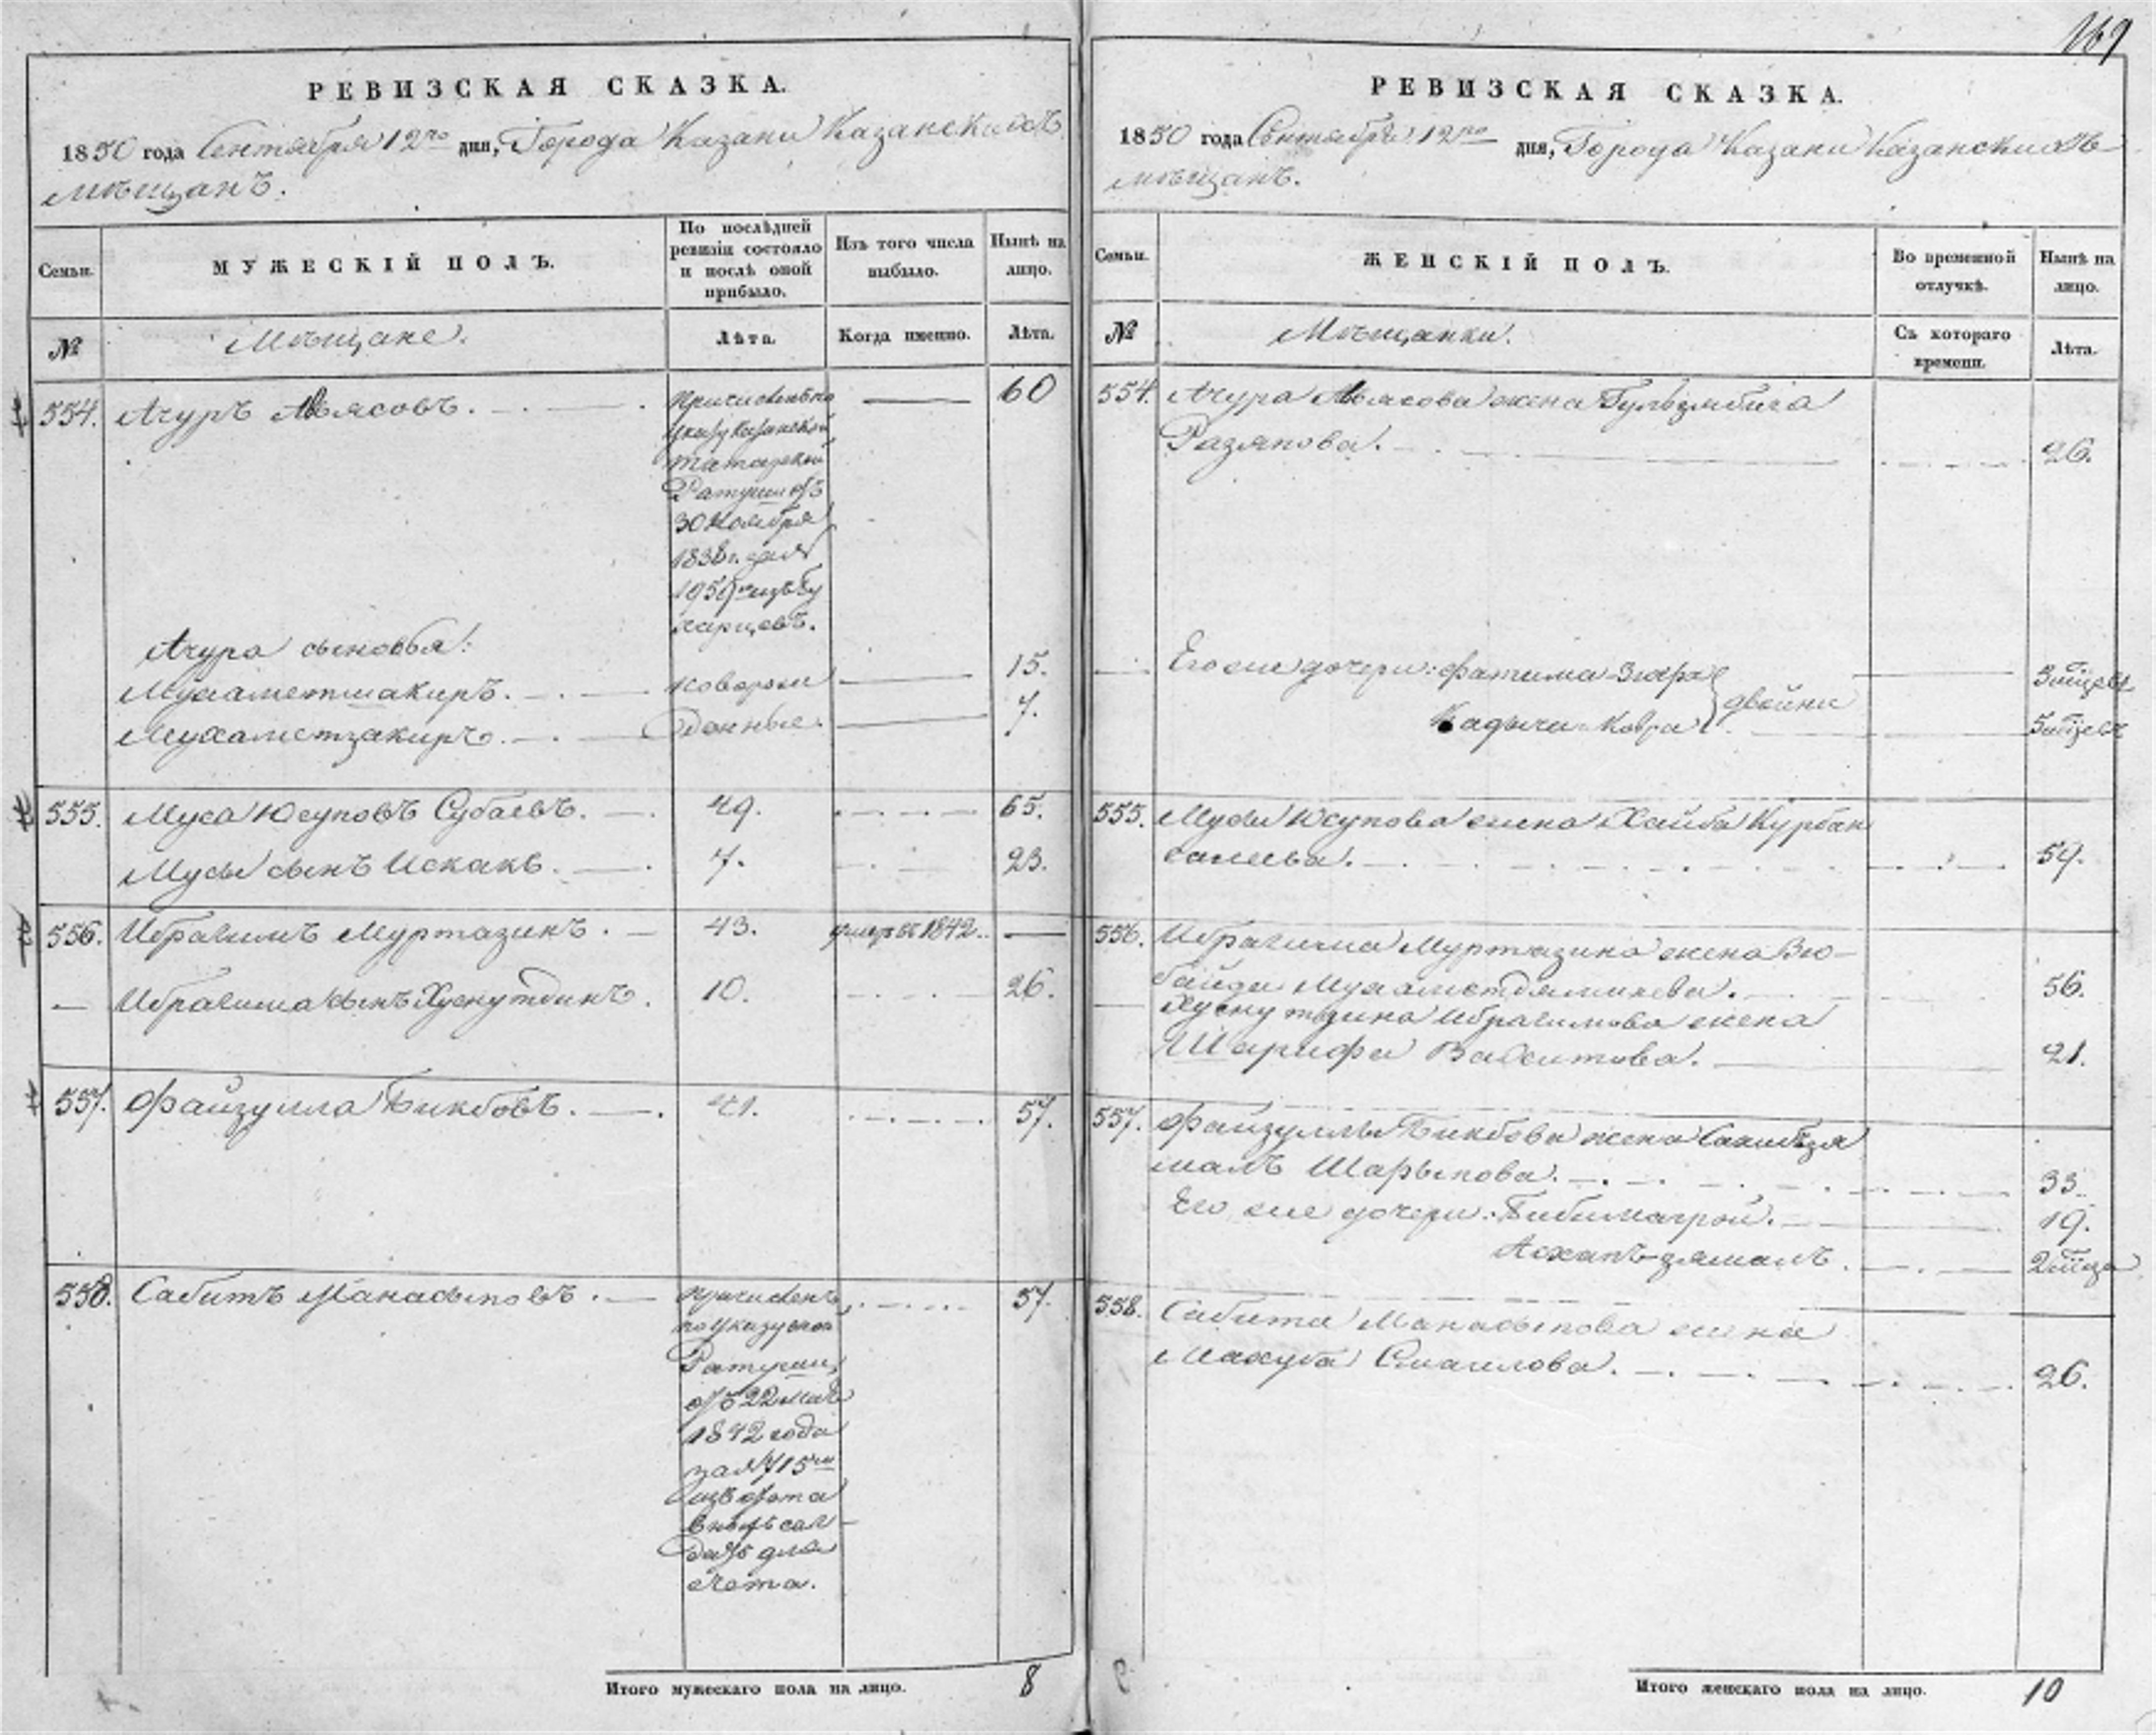 169
РЕВИЗСКАЯ СКАЗКА.
1850 года Сентября 12го дня, Города Казани Казанскихъ
мѣщанъ.
Семьи.
МУЖЕСКІЙ ПОЛЪ.
По послѣдней
ревизіи состояло
и послѣ оной
прибыло.
Изъ того числа
выбыло.
Нынѣ на
лицо.
№
Мѣщане.
Лѣта.
Когда именно.
Лѣта.
554. Ачуръ 60
указу Казанской
Татарской
Ратуши отъ
30 Ноября
Ачура сыновья:
Мухаметшакиръ. новорож 15.
Мухаметзакиръ. денные. 7.
555. Муса Юсуповъ Субаевъ. 49. 65.
Мусы сынъ Искакъ. 7. 23.
556. Ибрагимъ Муртазинъ. 43. умеръ въ 1842. —
— Ибрагима сынъ Хуснутдинъ. 10. 26.
557. Файзулла Бикбовъ. 41. 57.
558. Сабитъ Манасыповъ. Причисленъ 57.
по указу
Ратуши,
отъ 22 мая
1842 года
датъ для
счета.
Итого мужескаго пола на лицо. 8
РЕВИЗСКАЯ СКАЗКА.
1850 года Сентября 12го дня, Города Казани Казанскихъ
мѣщанъ.
Семьи.
ЖЕНСКІЙ ПОЛЪ.
Во временной
отлучкѣ.
Нынѣ на
лицо.
№
Мѣщанки.
Съ котораго
времени.
Лѣта.
554. Ачура жена
Разяпова. 26.
Его же дочери: Фатима Зюгра } двойни
555. Мусы Юсупова жена Хаиба Курбан
галеева. 59.
556. Ибрагима Муртазина жена Зю-
байда 56.
Хуснутдина Ибрагимова жена
Шарифа Вахитова. 21.
557. Файзуллы Бикбова жена Сахибзя
малъ Шарыпова. 33.
Его же дочери: 19.
Асхапъ-зямалъ.
558. Сабита Манасыпова жена
Махуба Смаилова. 26.
Итого женскаго пола на лицо. 10